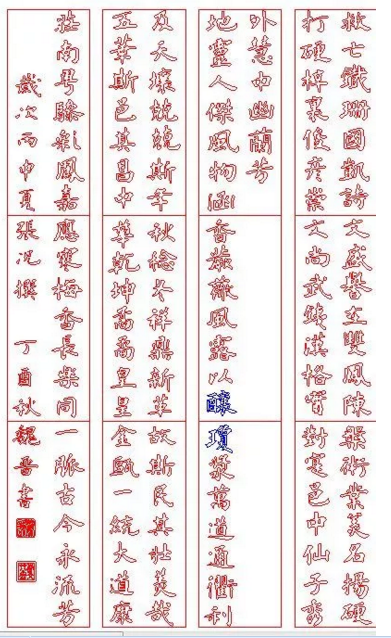 救亡鐵珊國凱詩文盛譽在雙鳳陳槃術業美名揚硬
打硬棹裏俊彥崇文尚武錢漢格實對定邑中仙子秀
外慧中幽蘭芳
地靈人傑風物涵香嚴薇風露以釀瓊漿萬道通衢利
及天壤兢兢斯年秋稔冬祥鼎新革故斯民其壯美哉
五華斯邑其昌中華乾坤喬喬皇皇金甌一統大道康
莊南粵驂彩鳳嘉應寒梅香長樂同一脈古今永流芳
歲次丙申夏張況撰 丁酉秋魏晉書